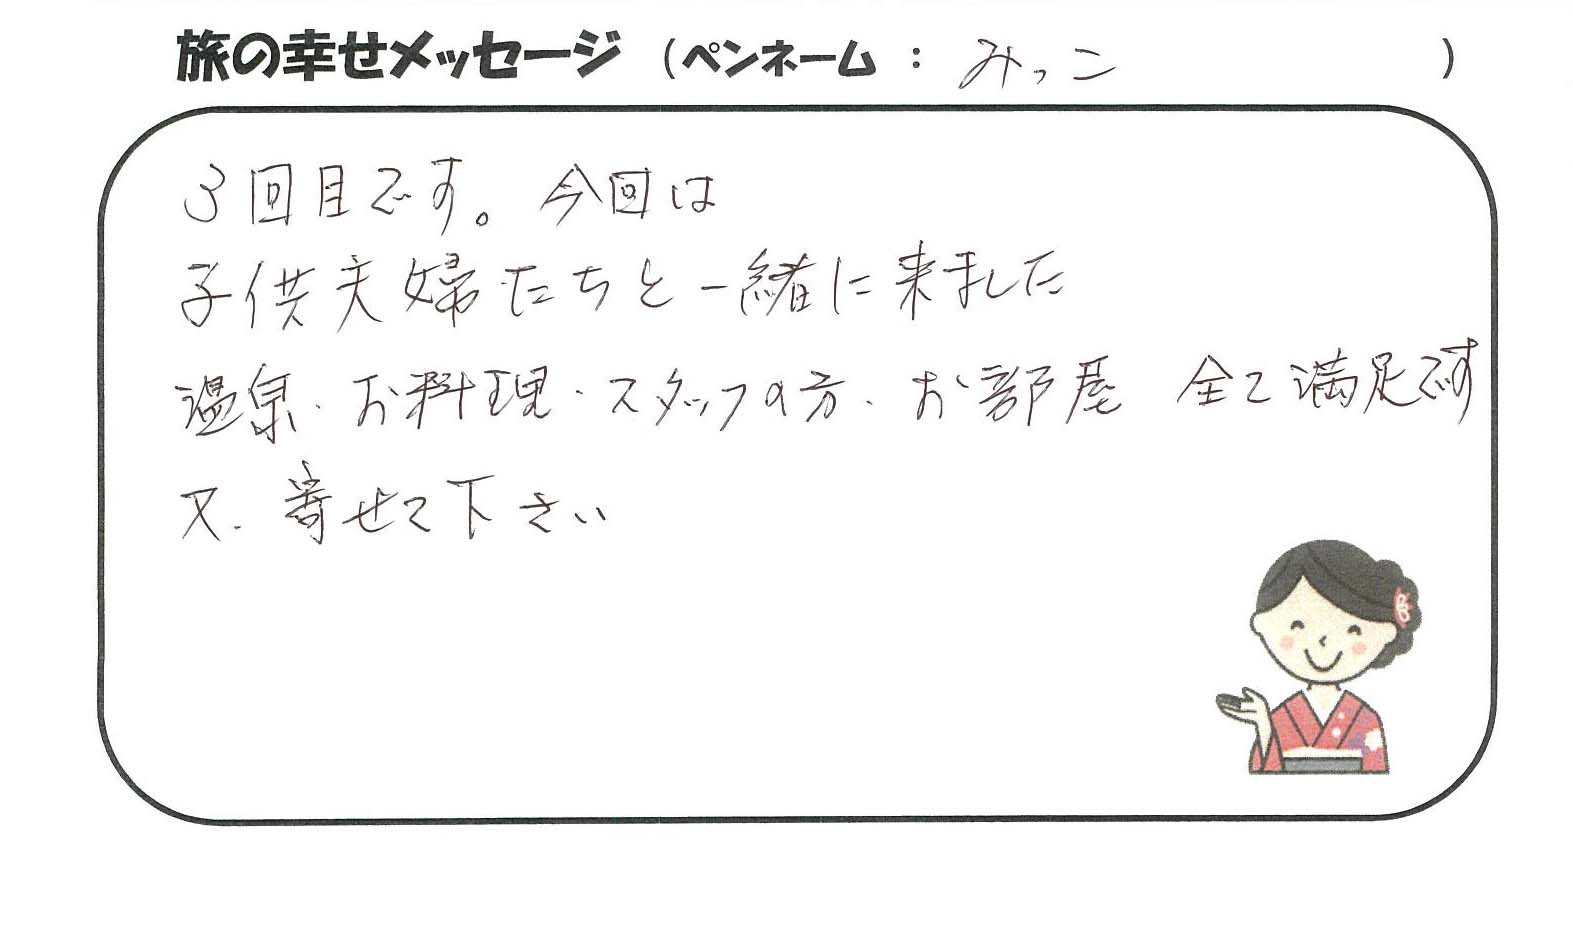 旅の幸せメッセージ (ペンネーム : みっこ )
3回目です。今回は
子供夫婦たちと一緒に来ました
温泉.お料理.スタッフの方.お部屋 全て満足です
又.寄せて下さい